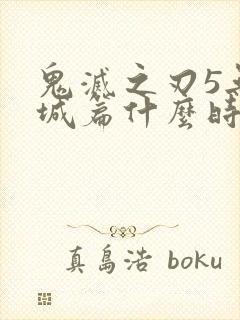 鬼滅之刃5
城篇什麼時
真島浩 boku